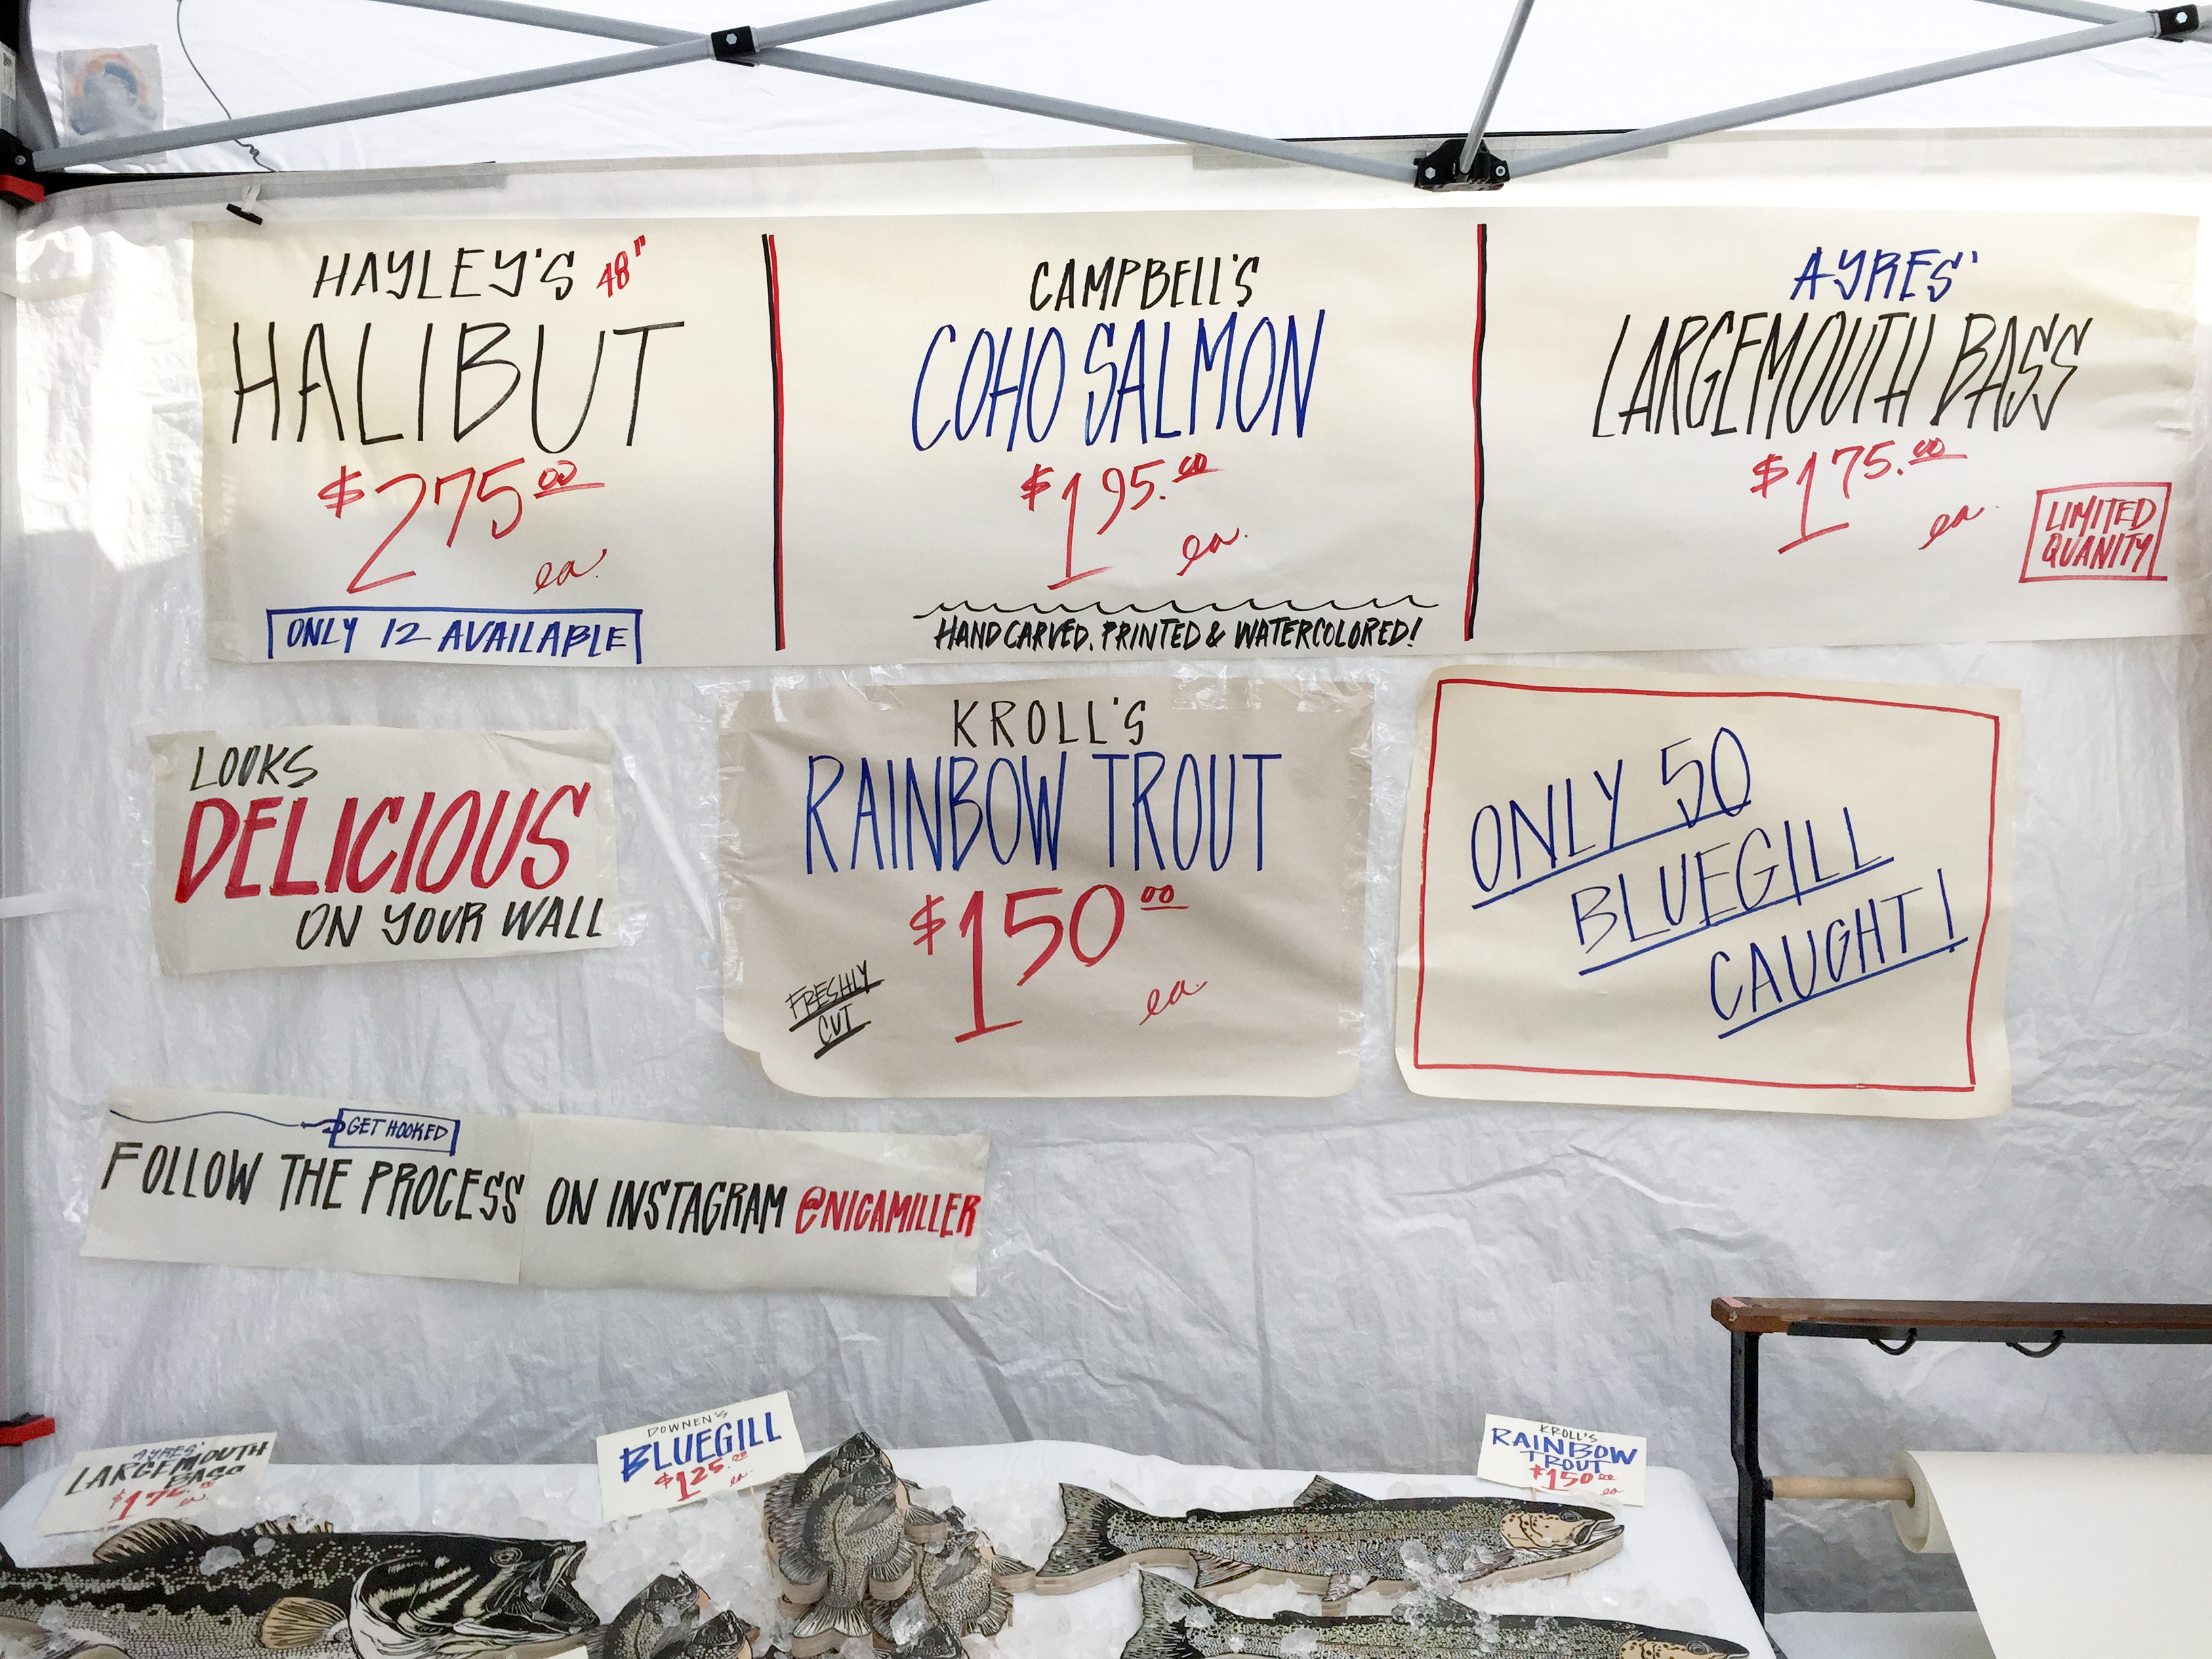 HAYLEY'S 48"
HALIBUT
$275.00
ea.
ONLY 12 AVAILABLE
CAMPBELL'S
COHO SALMON
$195.00
ea.
HAND CARVED, PRINTED & WATERCOLORED!
AYRES'
LARGEMOUTH BASS
$175.00
ea.
LIMITED
QUANITY
LOOKS
DELICIOUS
ON YOUR WALL
KROLL'S
RAINBOW TROUT
$150.00
ea.
FRESHLY
CUT
ONLY 50
BLUEGILL
CAUGHT!
GET HOOKED
FOLLOW THE PROCESS ON INSTAGRAM @NICAMILLER
AYRES'
LARGEMOUTH
BASS
$175.00
ea.
DOWNEN'S
BLUEGILL
$125.00
ea.
KROLL'S
RAINBOW
TROUT
$150.00
ea